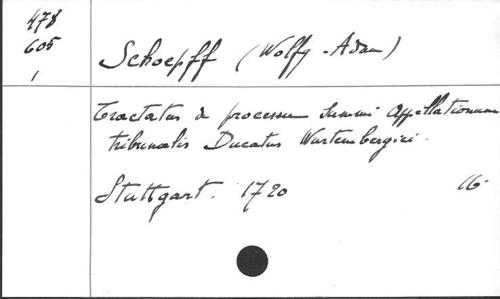 478
605
1
Schoepff (Wolfg-Adam)
Tractatus de processu summi Appellationum
tribunalis Ducatus Wurtembergici.
Stuttgart. 1720 16